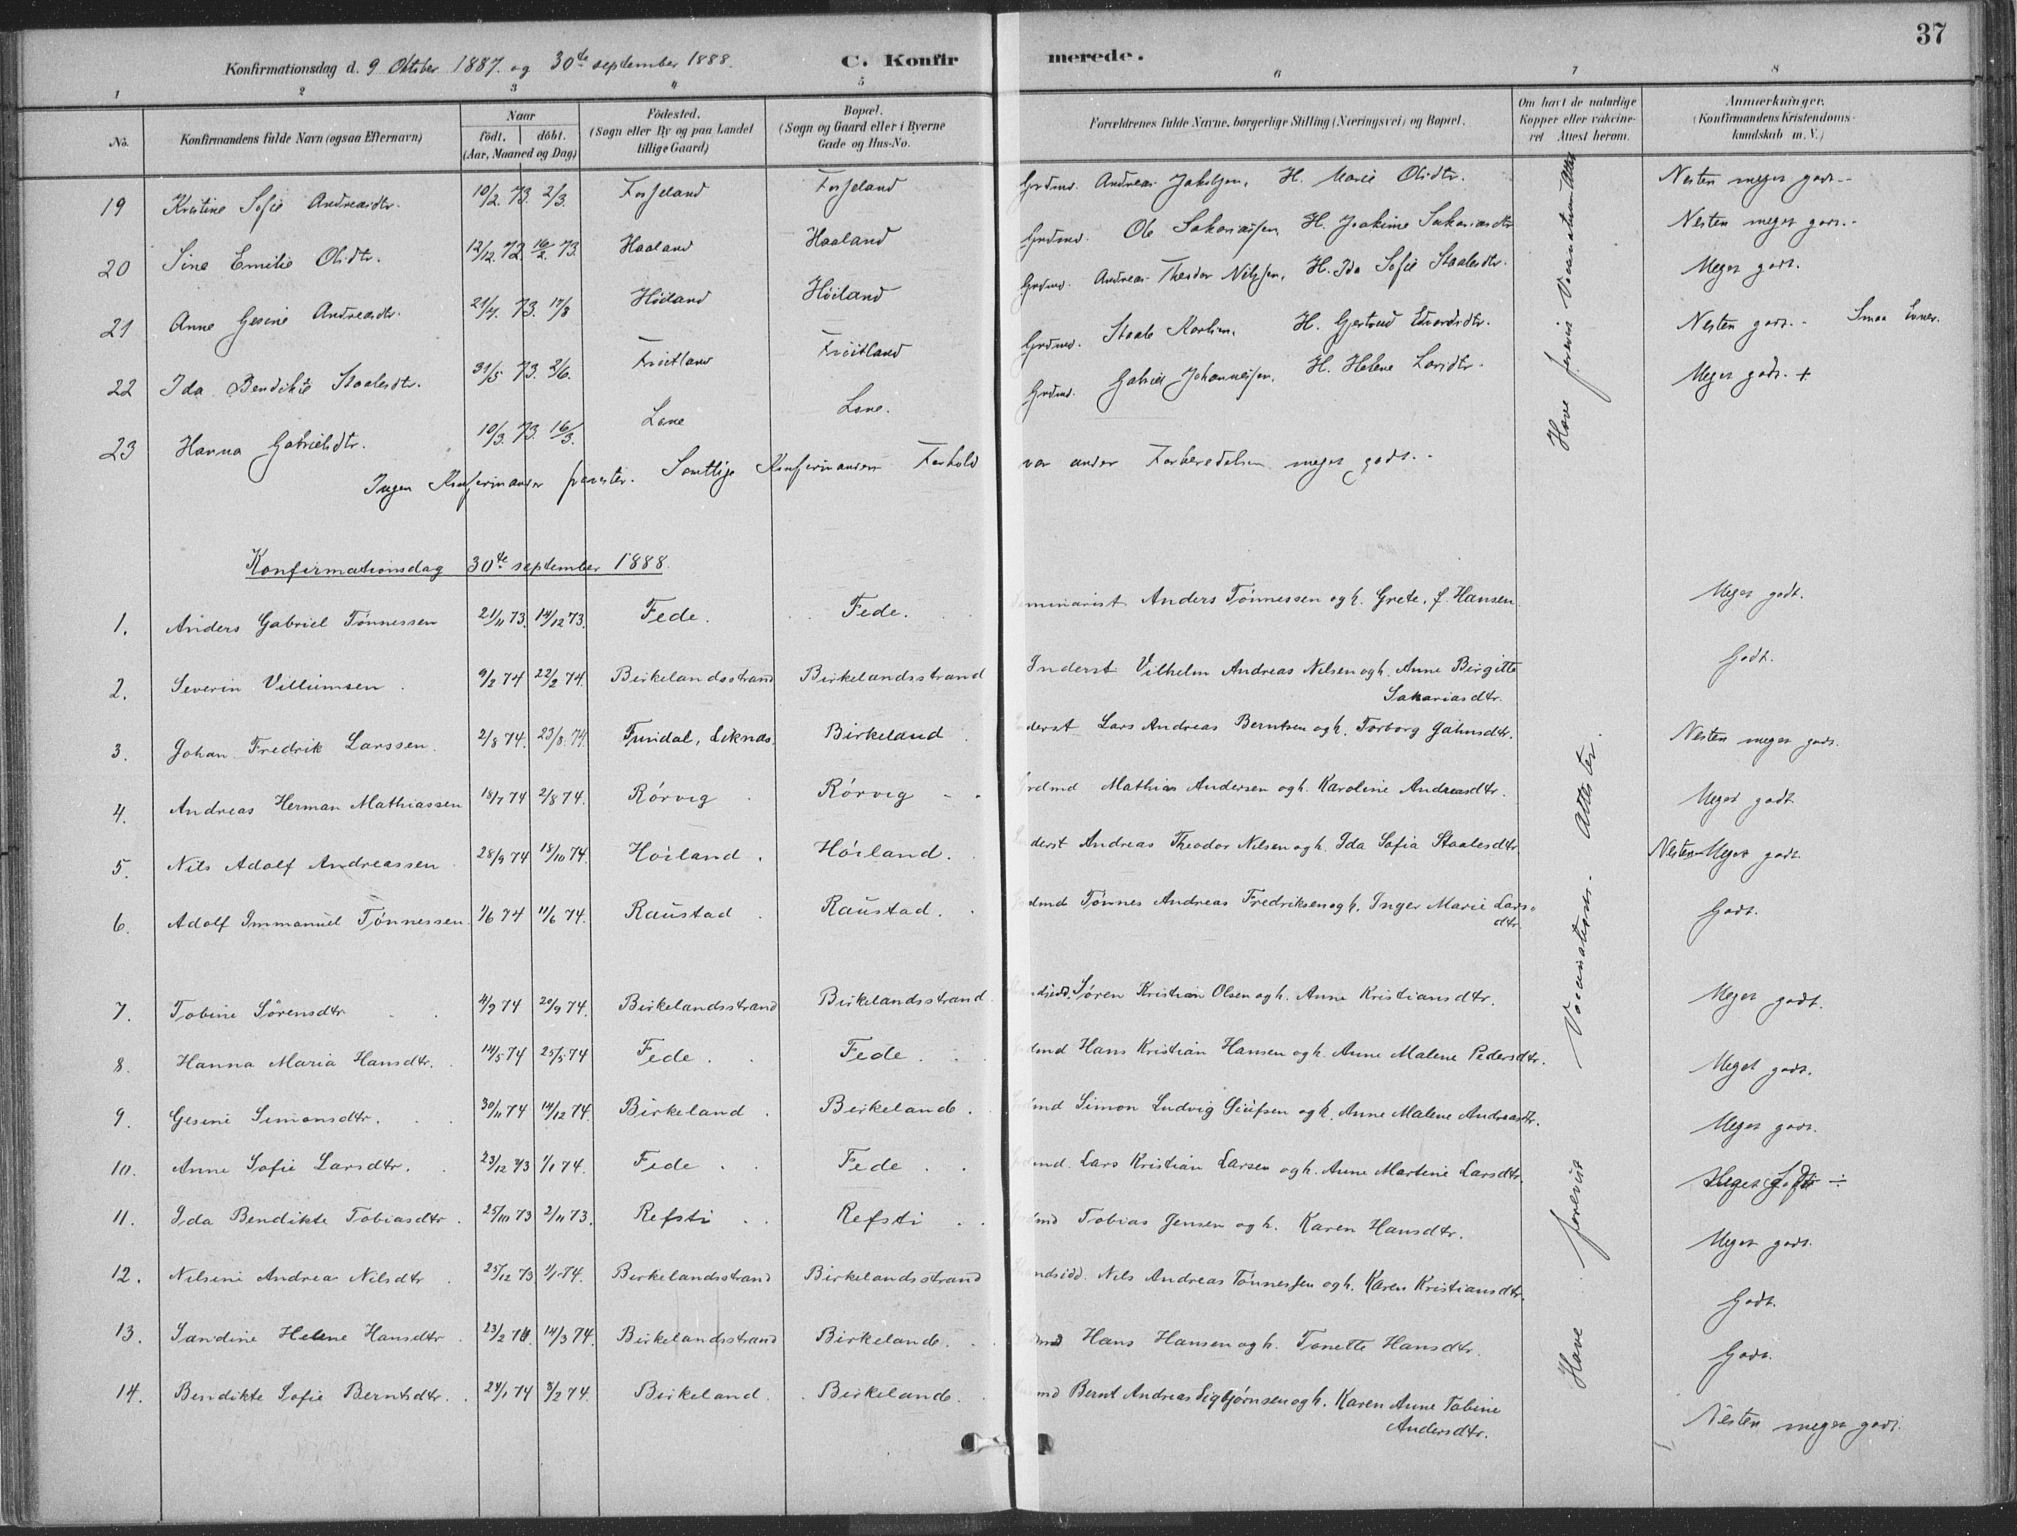 37
Konfirmationsdag d. 9 Oktober 1887. og 30te september 1888. C. Konfirmerede.
1 2 3 4 5 6 7 8
No. Konfirmandens fulde Navn (ogsaa Efternavn) Naar født. døbt. (Aar, Maaned og Dag) Fødested. (Sogn eller By og paa Landet tillige Gaard) Bopæl. (Sogn og Gaard eller i Byerne Gade og Hus-No. Forældrenes fulde Navne, borgerlige Stilling (Næringsvei) og Bopæl. Om havt de naturlige Kopper eller vakcineret Attest herom. Anmærkninger. (Konfirmandens Kristendomskundskab m. V.)
19 Kristine Sofie Andreasdtr. 10/2. 73. 2/3. Grdmd. Andreas Jakobsen, H. Marie Olsdtr. Nesten meget godt.
20 Sine Emilie Olsdtr. 12/12. 72. 16/2. 73. Haaland Haaland Grdmd. Ole Sakariassen, H. Joakime Sakariasdtr Nesten meget godt.
21 Anne Gesine Andreasdtr. 21/7. 73. 17/8 Höiland Höiland Grdmd. Andreas Theodor Nilssen, H. Ida Sofie Staalesdtr. Meget godt.
22 Ida Bendikte Staalesdtr. 31/5 73. 2/6. Fröitland Fröitland Grdmd. Staale Karlsen, H. Gjertrud Edvardsdtr. Nesten godt. - Smaa Evner.
23 Hanna Gabrielsdtr. 10/3. 73. 16/3. Lone Lone. Grdmd. Gabriel Johannessen, H. Helene Larsdtr. Meget godt. +
Ingen Konfirmander fravister. Samtlige Konfirmanders Forhold var under Forberedelsen meget godt.
Have forevis Vaccinations Atter
Konfirmationsdag 30te september 1888.
1. Anders Gabriel Tönnessen 21/11 73. 14/12 73. Fede. Fede. Seminarist Anders Tönnessen og h. Grete, f. Hansen Meget godt.
2. Severin Villumsen 9/2 74 22/2 74. Birkelandsstrand Birkelandsstrand Inderst Vilhelm Andreas Nilsen og h. Anne Birgitte Sakariasdtr. Godt.
3. Johan Fredrik Larssen. 2/8 74. 23/8. 74. Birkeland Inderst Lars Andreas Berntsen og h. Torborg Nesten meget godt.
4. Andreas Herman Mathiassen 18/7 74 2/8 74. Rörvig Rörvig Grdmd Mathias Andersen og h. Karoline Andreasdtr. Meget godt
5. Nils Adolf Andreassen 28/9 74 18/10 74. Höiland. Höiland. Inderst Andreas Theodor Nilsen og h. Ida Sofia Staalesdtr Nesten Meget godt.
6. Adolf Immanuel Tönnessen 1/6 74 11/6 74. Raustad Raustad. Grdmd Tönnes Andreas Fredriksen og h. Inger Marie Larsdtr. Godt.
7. Tobine Sörensdtr 4/9 74 20/9 74. Birkelandsstrand Birkelandsstrand Sören Kristian Olsen og h. Anne Kristiansdtr. Meget godt.
8. Hanna Maria Hansdtr. 14/5 74 25/5 74 Fede. Fede. Grdmd Hans Kristian Hansen og h. Anne Malene Pedersdtr. Meget godt.
9. Gesine Simonsdtr. 30/11 74 14/12 74. Birkeland Birkeland. Grdmd Simon Ludvig og h. Anne Malene Andreasdtr. Meget godt.
10. Anne Sofie Larsdtr. 23/12 73 1/1 74. Fede Fede Grdmd. Lars Kristian Larsen og h. Anne Martine Larsdtr. Meget godt ÷
11. Ida Bendikte Tobiasdtr. 25/10 73 2/11 73. Refsti Refsti Grdmd Tobias Jensen og h. Karen Hansdtr. Meget godt.
12. Nilsine Andrea Nilsdtr 25/12 73 1/1 74. Birkelandsstrand Birkelandsstrand Strandsidd. Nils Andreas Tönnessen og h. Karen Kristiansdtr. Godt.
13. Sandine Helene Hansdtr 23/2 74. 14/3 74. Birkelandsstrand Birkeland. Grdmd Hans Hansen og h. Tonette Hansdtr. Godt.
14. Bendikte Sofie Berntsdtr. 24/1 74 8/2 74. Birkeland. Birkeland. Grdmd Bernt Andreas Sigbjörnsen og h. Karen Anne Tobine Andersdtr. Nesten meget godt.
Have forevist Vaccinations Attester.